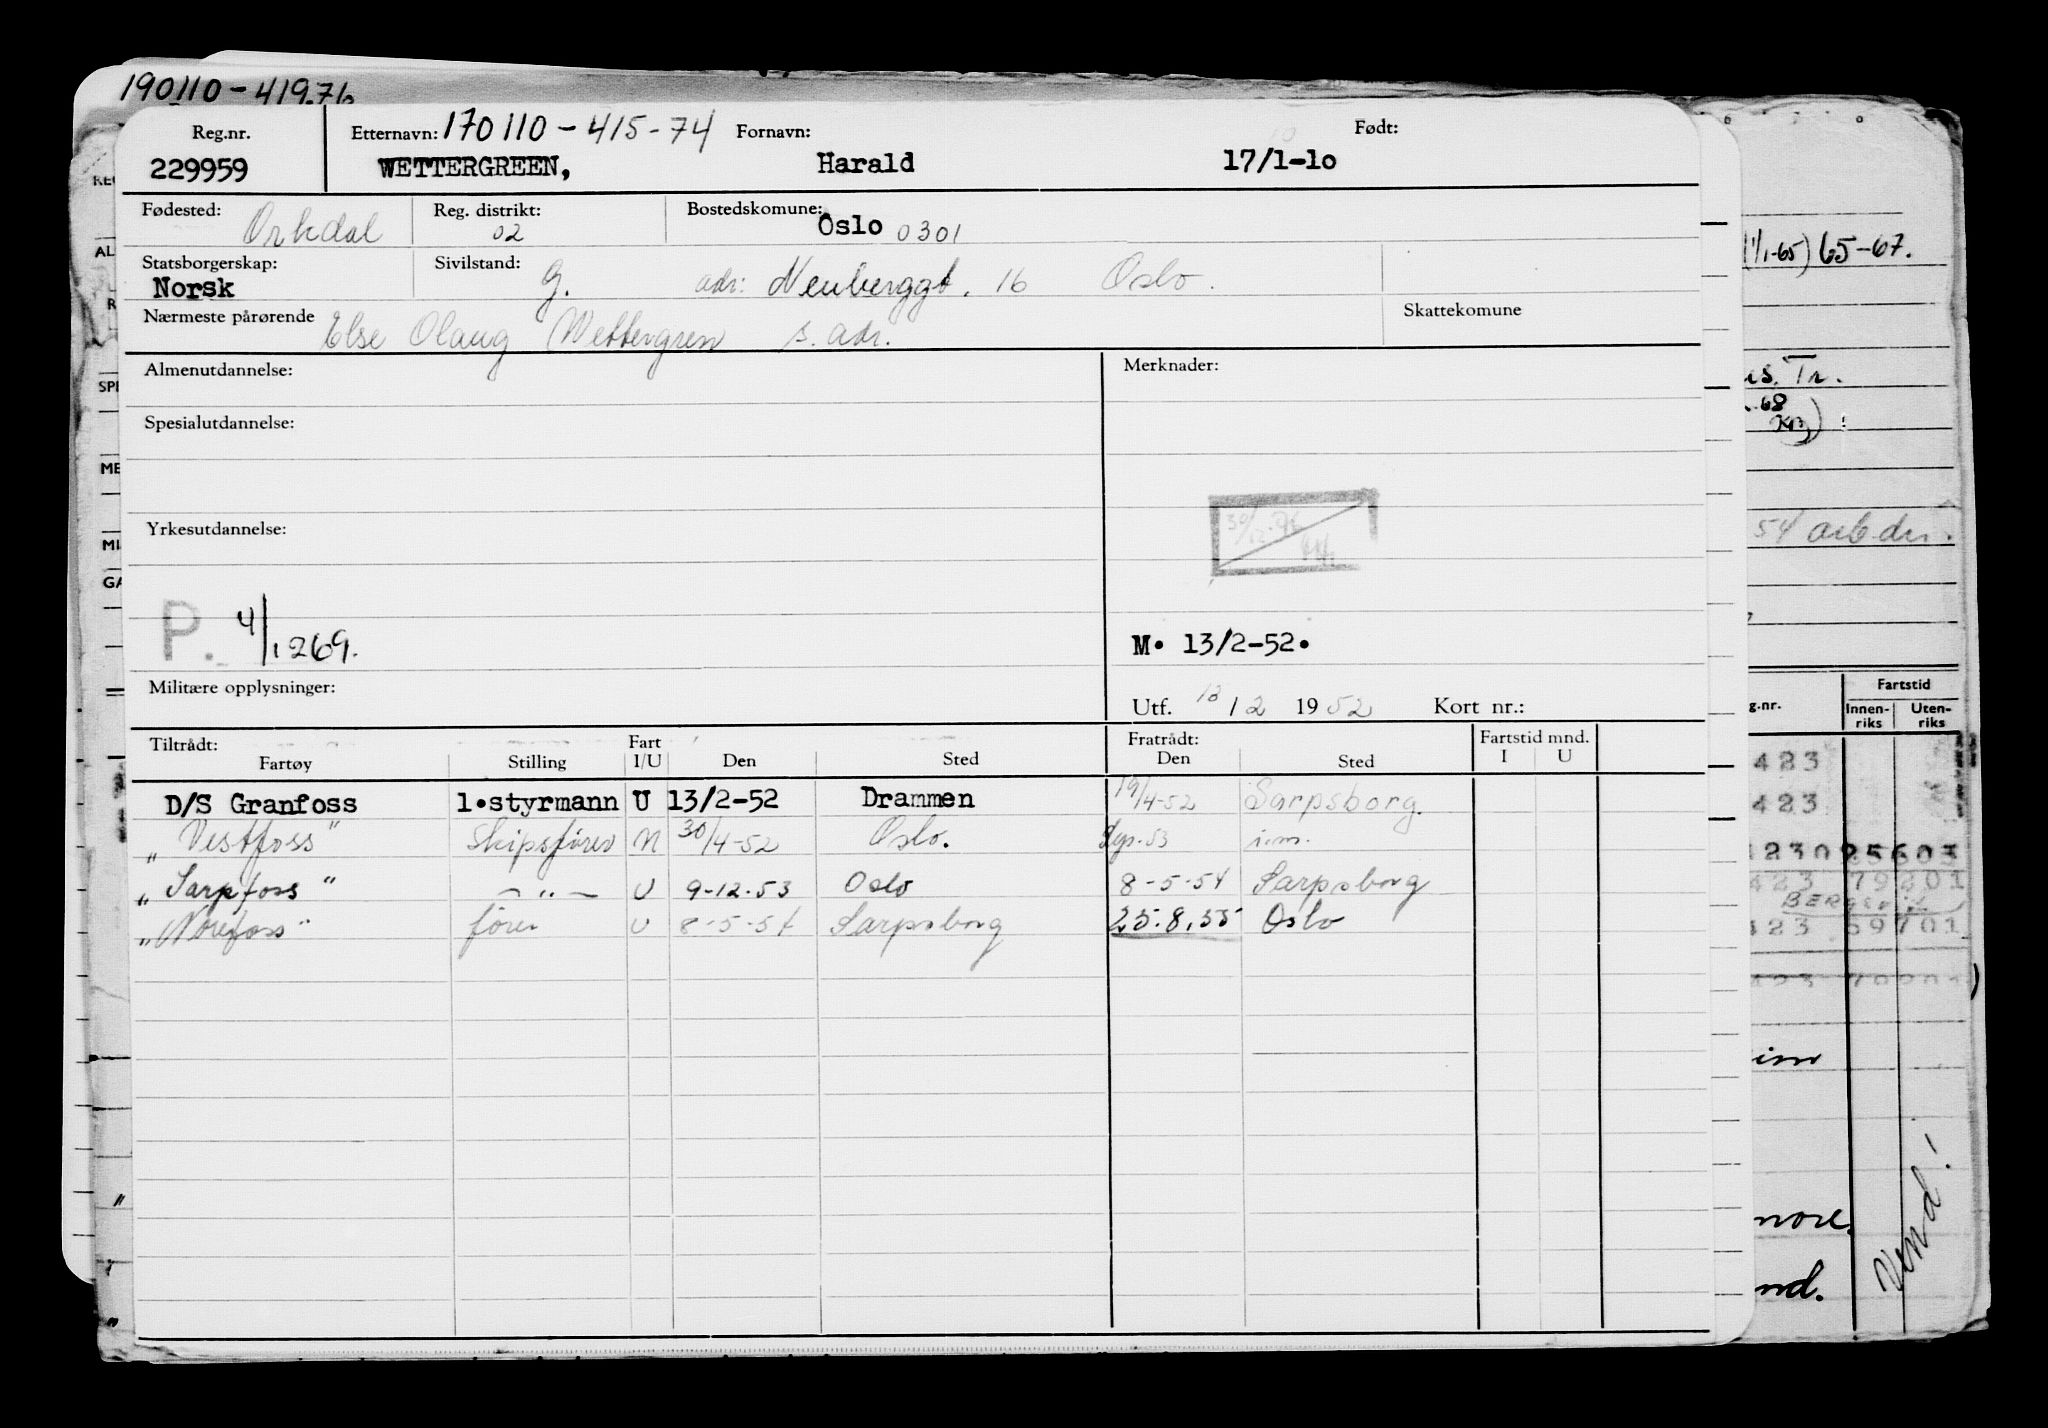 190110-419.76
Reg.nr. Etternavn: 170110-415-74 Fornavn: Født:
229959 WETTERGREEN, Harald 17/1-1o
Fødested: Orkdal Reg. distrikt: 02 Bostedskomune: Oslo 0301
Statsborgerskap: Norsk Sivilstand: g. adr: Neuberggt. 16 Oslo.
Nærmeste pårørende Else Olaug Wettergren s. adr. Skattekomune
Almenutdannelse: Merknader:
Spesialutdannelse:
Yrkesutdannelse:
P. 4/1269.
M. 13/2-52.
Militære opplysninger: Utf. 13/2 1952 Kort nr.:
Tiltrådt: Fart Fratrådt: Fartstid mnd.
Fartøy Stilling I/U Den Sted Den Sted I U
D/S Granfoss 1.styrmann U 13/2-52 Drammen 19/4-52 Sarpsborg.
" Vestfoss" Skipsfører N 30/4-52 Oslo. 53 i.m.
" Sarpfoss " - " - U 9-12-53 Oslo 8-5-54 Sarpsborg
" Norefoss" fører U 8-5-54 Sarpsborg 25.8.55 Oslo
(1/1-65) 65-67.
Tr.
68
54 arb.dr.
g.nr. Fartstid
Innen-riks Uten-riks
423
423
4230 25603
423 79201
BERGSVIK
423 59701
423 79201
im
nore.
nd.
Vend!